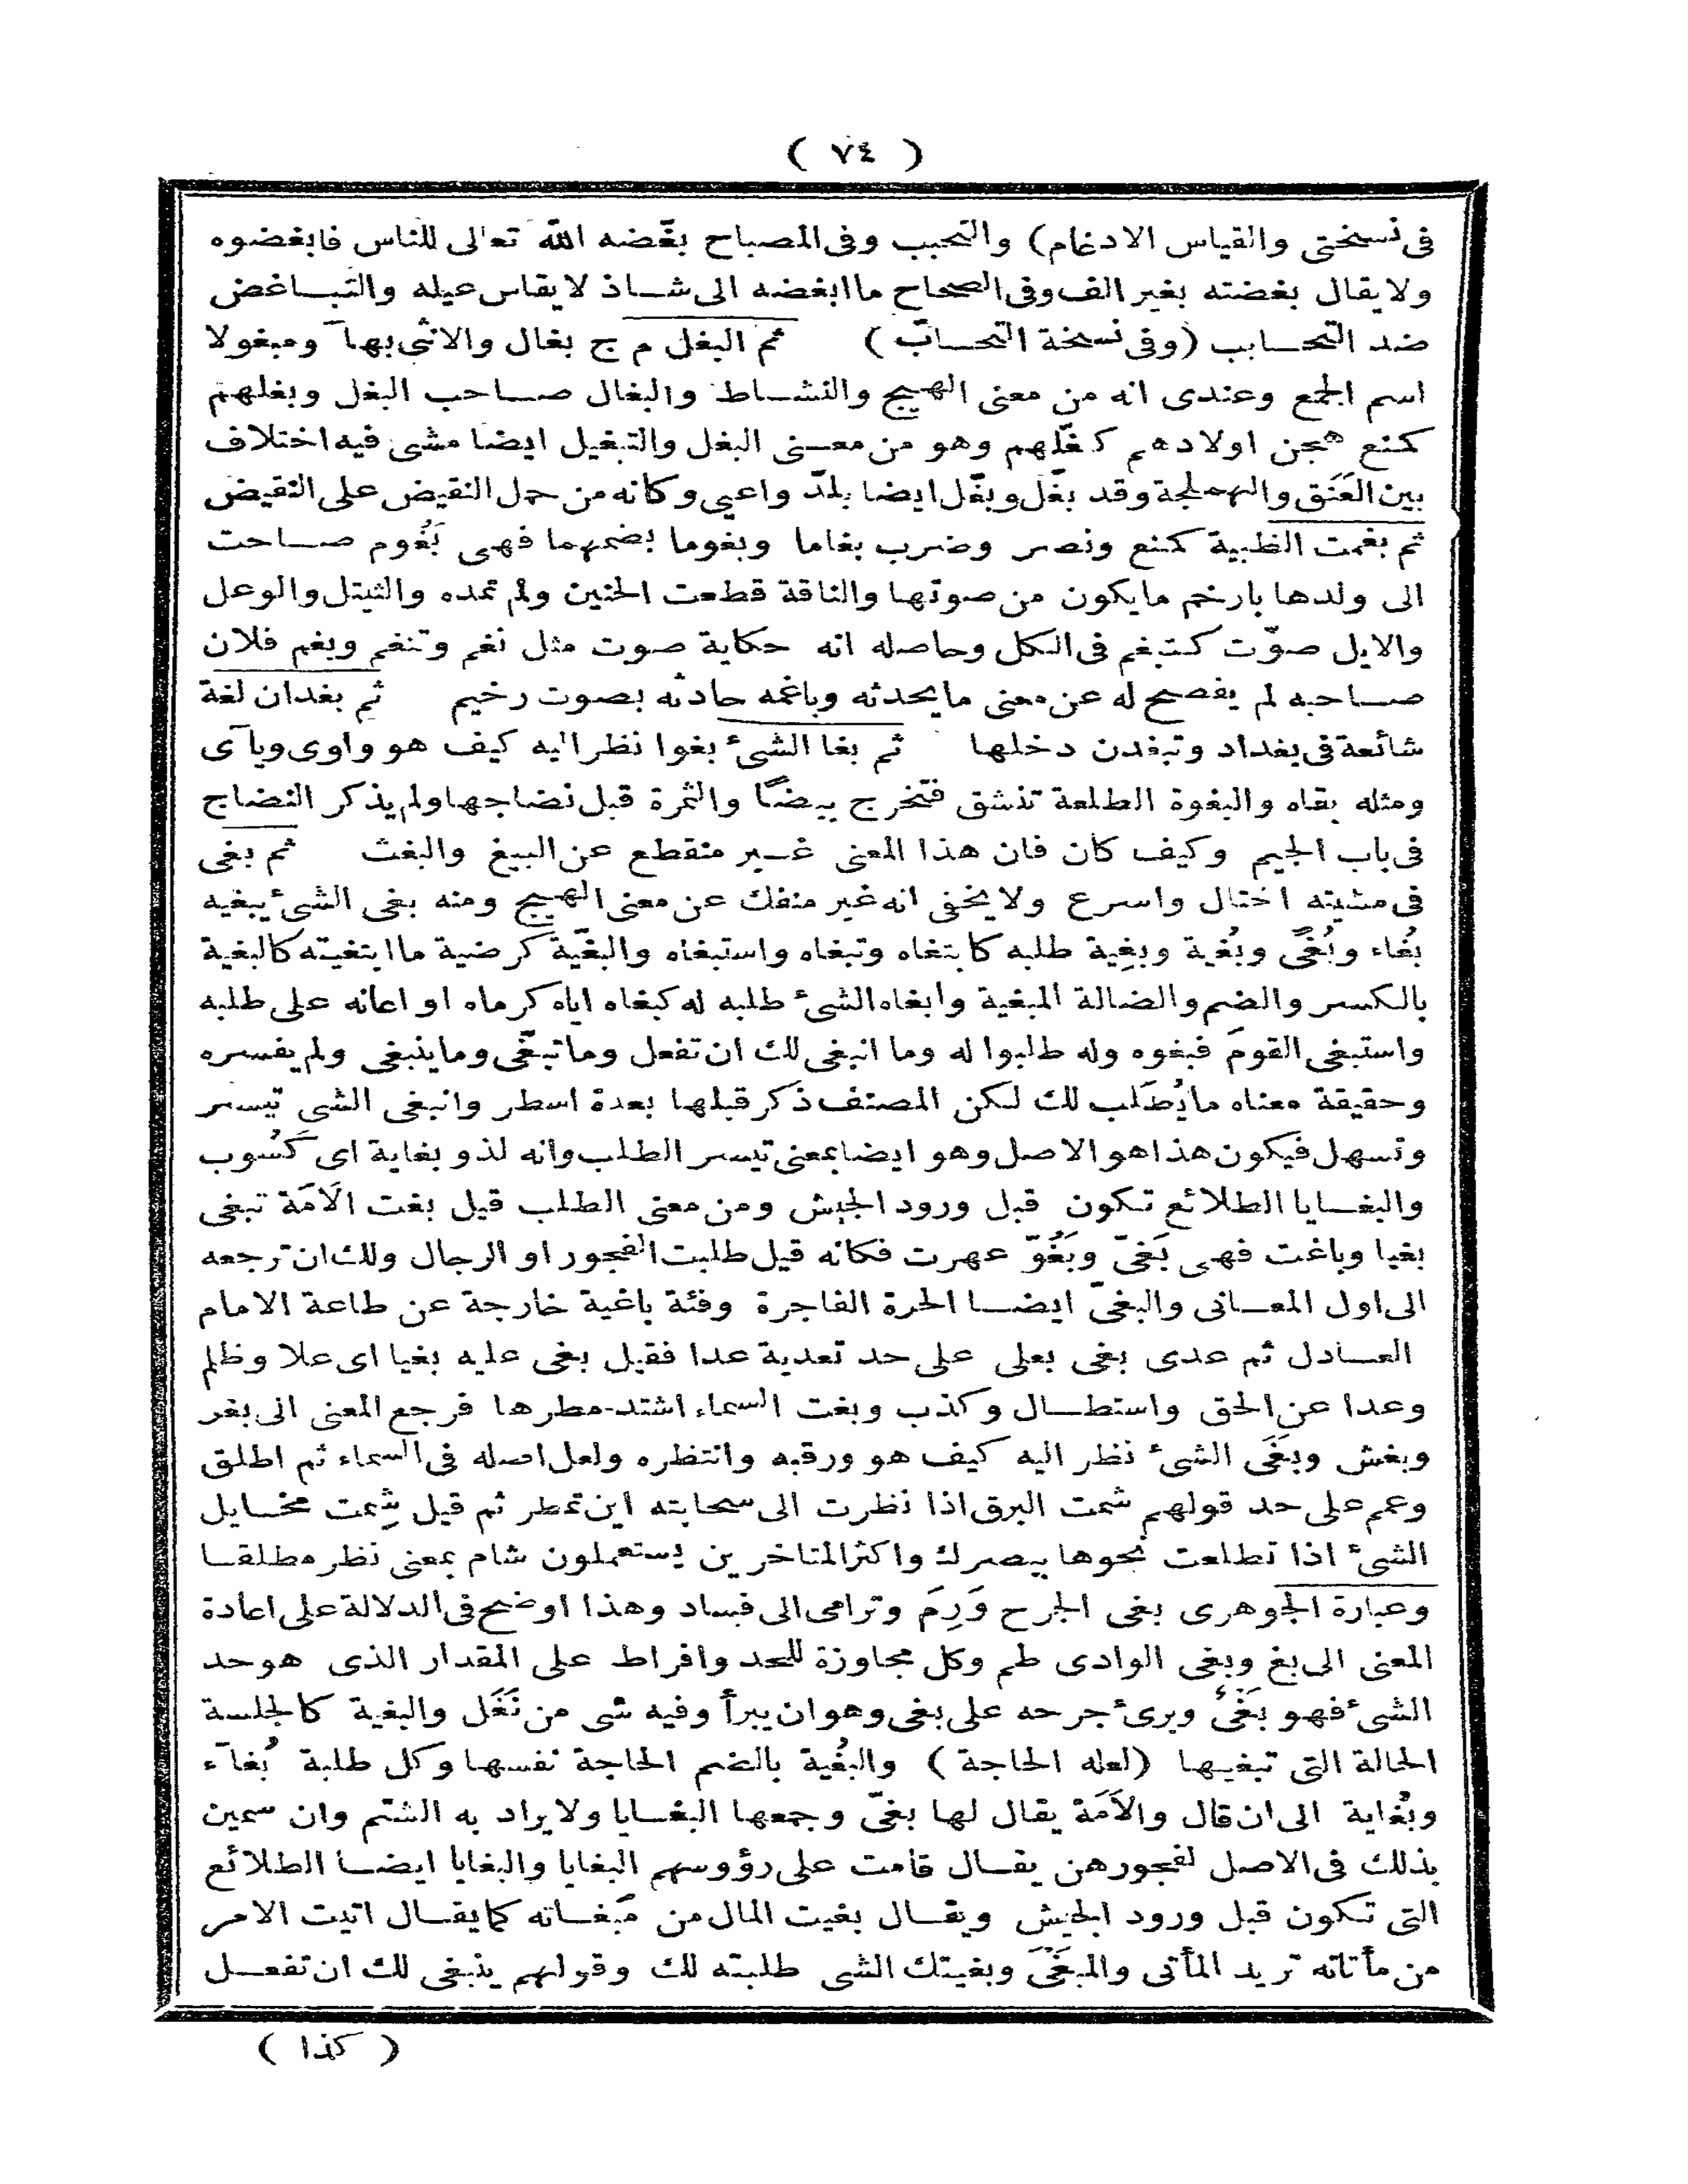 ( ٧٤ )
فى نسختى والقياس الادغام) والتحبب وفى المصباح بغّضه الله تعالى للناس فابغضوه
ولا يقال بغضته بغير الف وفى الصحاح ما ابغضه الى شاذ لا يقاس عيله والتباغض
ضد التحابب (وفى نسخة التحابّ) ثم البغل م ج بغال والانثى بهآ ومبغولا
اسم الجمع وعندى انه من معنى الهيج والنشاط والبغال صاحب البغل وبغلهم
كمنع هجن اولادهم كغّلهم وهو من معنى البغل والتبغيل ايضا مشى فيه اختلاف
بين العَنَق والهملجة وقد بغّل وبغّل ايضا بلدّ واعيى وكانه من حمل النقيض على النقيض
ثم بغمت الظبية كمنع ونصر وضرب بغاما وبغوما بضمهما فهى بَغُوم صاحت
الى ولدها بارخم ما يكون من صوتها والناقة قطعت الحنين ولم تمده والثيتل والوعل
والايل صوّت كتبغم فى الكل وحاصله انه حكاية صوت مثل نغم وتنغم وبغم فلان
صاحبه لم يفصح له عن معنى ما يحدثه وباغمه حادثه بصوت رخيم ثم بغدان لغة
شائعة فى بغداد وتبغدن دخلها ثم بغا الشىء بغوا نظر اليه كيف هو واوى ويآى
ومثله بقاه والبغوة الطلعة تنشق فتخرج بيضًا والثمرة قبل نضاجها ولم يذكر النضاج
فى باب الجيم وكيف كان فان هذا المعنى غير منقطع عن البيغ والبغث ثم بغى
فى مشيته اختال واسرع ولا يخفى انه غير منفك عن معنى الهيج ومنه بغى الشىء يبغيه
بُغاء وبُغىً وبُغية وبِغية طلبه كابتغاه وتبغاه واستبغاه والبغّية كرضية ما ابتغيته كالبغية
بالكسر والضم والضالة المبغية وابغاه الشىء طلبه له كبغاه اياه كرماه او اعانه على طلبه
واستبغى القومَ فبغوه وله طلبوا له وما انبغى لك ان تفعل وما تبغّى وما ينبغى ولم يفسره
وحقيقة معناه ما يُطلَب لك لكن المصنف ذكر قبلها بعدة اسطر وانبغى الشى تيسر
وتسهل فيكون هذا هو الاصل وهو ايضا بمعنى تيسر الطلب وانه لذو بغاية اى كَسُوب
والبغايا الطلائع تكون قبل ورود الجيش ومن معنى الطلب قيل بغت الاَمَة تبغى
بغيا وباغت فهى بَغىّ وبَغُوّ عهرت فكانه قيل طلبت الفجور او الرجال ولك ان ترجعه
الى اول المعانى والبغىّ ايضا الحرة الفاجرة وفئة باغية خارجة عن طاعة الامام
العادل ثم عدى بغى بعلى على حد تعدية عدا فقيل بغى عليه بغيا اى علا وظلم
وعدا عن الحق واستطال وكذب وبغت السماء اشتد مطرها فرجع المعنى الى بغر
وبغش وبغَى الشىء نظر اليه كيف هو ورقبه وانتظره ولعل اصله فى السماء ثم اطلق
وعم على حد قولهم شمت البرق اذا نظرت الى سحابته اين تمطر ثم قيل شِمت مخايل
الشىء اذا تطلعت نحوها ببصرك واكثر المتاخرين يستعملون شام بمعنى نظر مطلقا
وعبارة الجوهرى بغى الجرح وَرِمَ وترامى الى فساد وهذا اوضح فى الدلالة على اعادة
المعنى الى بغ وبغى الوادى طم وكل مجاوزة للحد وافراط على المقدار الذى هو حد
الشىء فهو بَغْىٌ وبرئ جرحه على بغى وهو ان يبرأ وفيه شى من نَغَل والبغية كالجلسة
الحالة التى تبغيها (لعله الحاجة) والبُغية بالضم الحاجة نفسها وكل طلبة بُغآء
وبُغاية الى ان قال والاَمَة يقال لها بغىّ وجمعها البغايا ولا يراد به الشتم وان سمين
بذلك فى الاصل لفجورهن يقال قامت على رؤوسهم البغايا والبغايا ايضا الطلائع
التى تكون قبل ورود الجيش ويقال بغيت المال من مَبغاته كما يقال اتيت الامر
من مأتاته تريد المأتى والمبغَى وبغيتك الشى طلبته لك وقولهم ينبغى لك ان تفعل
( كذا )